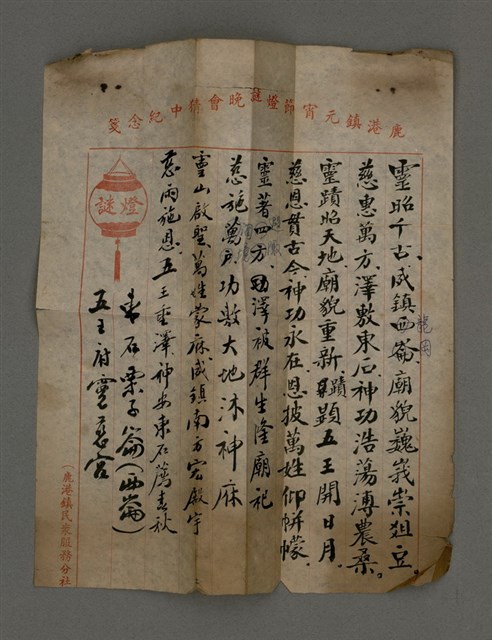 鹿港鎮元宵節燈謎晚會猜中紀念箋
靈昭千古威鎮西崙廟貌巍峩崇俎豆
龍岡
慈惠萬方澤敷東石神功浩蕩溥農桑
靈蹟昭天地廟貌重新蹟顯五王開日月
慈恩貫古今神功永在恩披萬姓仰帡幪
靈著四方澤被群生隆廟祀
慈施萬戶功敷大地沐神庥
靈山啟聖萬姓蒙庥威鎮南方宏殿宇
慈雨施恩五王垂澤神安東石薦春秋
東石栗子崙（西崙）
五王府靈慈宮
燈謎
（鹿港鎮民眾服務分社